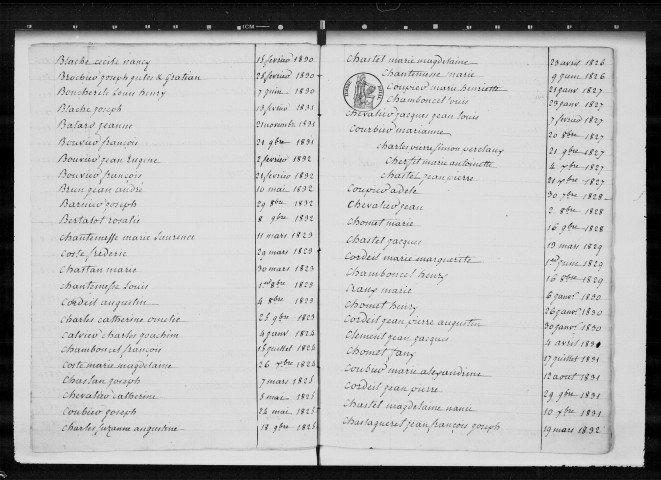 Blache cecile nancy 15 fevrier 1830
Brochier joseph jules & gratian 28 fevrier 1830
Boncherle louis henry 7 juin 1830
Blache joseph 13 fevrier 1831
Balard jeanne 21 novembre 1831
Bouvier françois 21 9bre 1831
Bouvier jean eugene 2 fevrier 1832
Bouvier françois 21 fevrier 1832
Brun jean andré 10 mai 1832
Barnier joseph 29 8bre 1832
Bertalot rosalie 8 9bre 1832
Chantemesse marie laurence 11 mars 1823
Coste frederic 29 mars 1823
Chastan marie 30 mars 1823
Chantemesse louis 1er 8bre 1823
Cordeil augustin 4 8bre 1823
Charles catherine emelie 25 9bre 1823
Calvier charles joachim 4 janv 1824
Chamboncel françois 15 juillet 1824
Coste marie magdelaine 26 7bre 1824
Chastan joseph 7 mars 1825
Chevalier catherine 5 mai 1825
Coubier joseph 25 mai 1825
Charles suzanne augustine 18 9bre 1825
Chastel marie magdelaine 23 avril 1826
Chantemesse marie 9 juin 1826
Coupier marie henriette 21 janv 1827
Chamboncel louis 23 janv 1827
Chevalier jacques jean louis 7 fevrier 1827
Courbier marianne 20 8bre 1827
Charles pierre simon 21 9bre 1827
marie antoinette 4 xbre 1827
Chastel jean pierre 21 xbre 1827
Coupier adele 30 7bre 1828
Chevalier jean 2 8bre 1828
Chomet marie 16 9bre 1828
Chastel jacques 13 mars 1829
Cordeil marie marguerite 1er juin 1829
Chamboncel henry 16 8bre 1829
Craux marie 6 janvr 1830
Chomet henry 26 janvr 1830
Cordeil jean pierre augustin 30 janvr 1830
Clement jean jacques 4 avril 1831
Chomet fany 17 juillet 1831
Coubier marie alexandrine 12 aout 1831
Cordeil jean pierre 29 9bre 1831
Chastel magdelaine nancie 10 xbre 1831
Chastagneret jean françois joseph 19 mars 1832